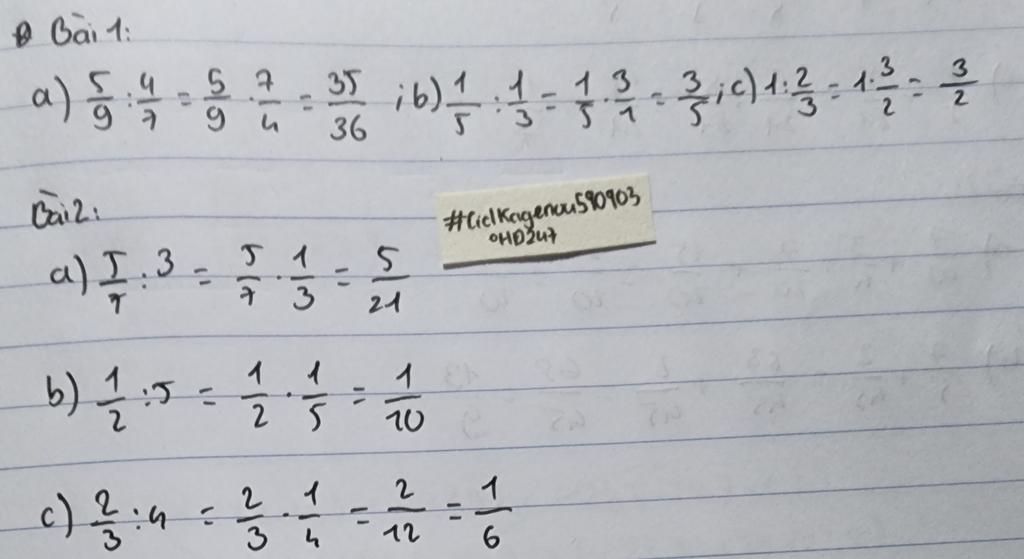 Bài 1:
a) 5/9 : 4/7 = 5/9 . 7/4 = 35/36 ; b) 1/5 : 1/3 = 1/5 . 3/1 = 3/5 ; c) 1 : 2/3 = 1 . 3/2 = 3/2
Bài 2:
#CielKagenou590903
OHD247
a) 5/7 : 3 = 5/7 . 1/3 = 5/21
b) 1/2 : 5 = 1/2 . 1/5 = 1/10
c) 2/3 : 4 = 2/3 . 1/4 = 2/12 = 1/6